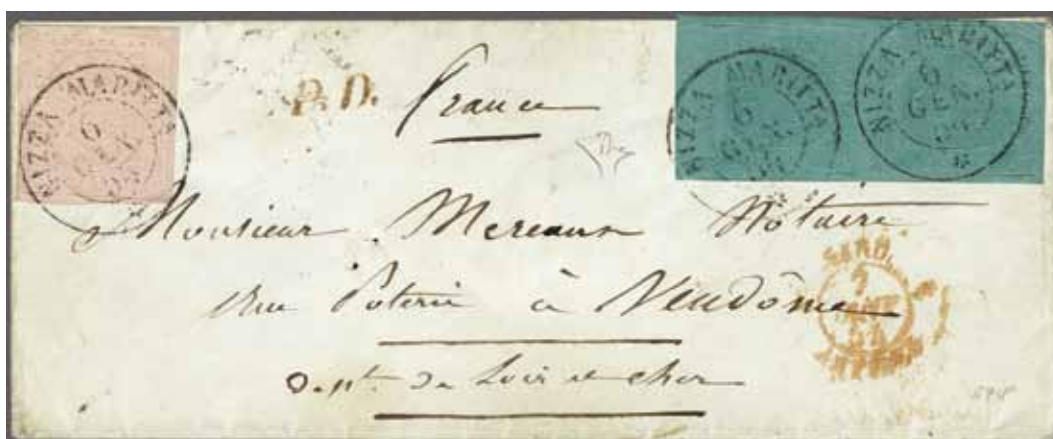 NIZZA MARITTA
6
GEN.
54
P.D.
France
NIZZA MARITTA
6
GEN.
NIZZA MARITTA
6
GEN.
Monsieur Mereaux Notaire
rue Poterie à Vendôme
SARD.
7
54
ANTIBES
Dept. de Loir et Cher